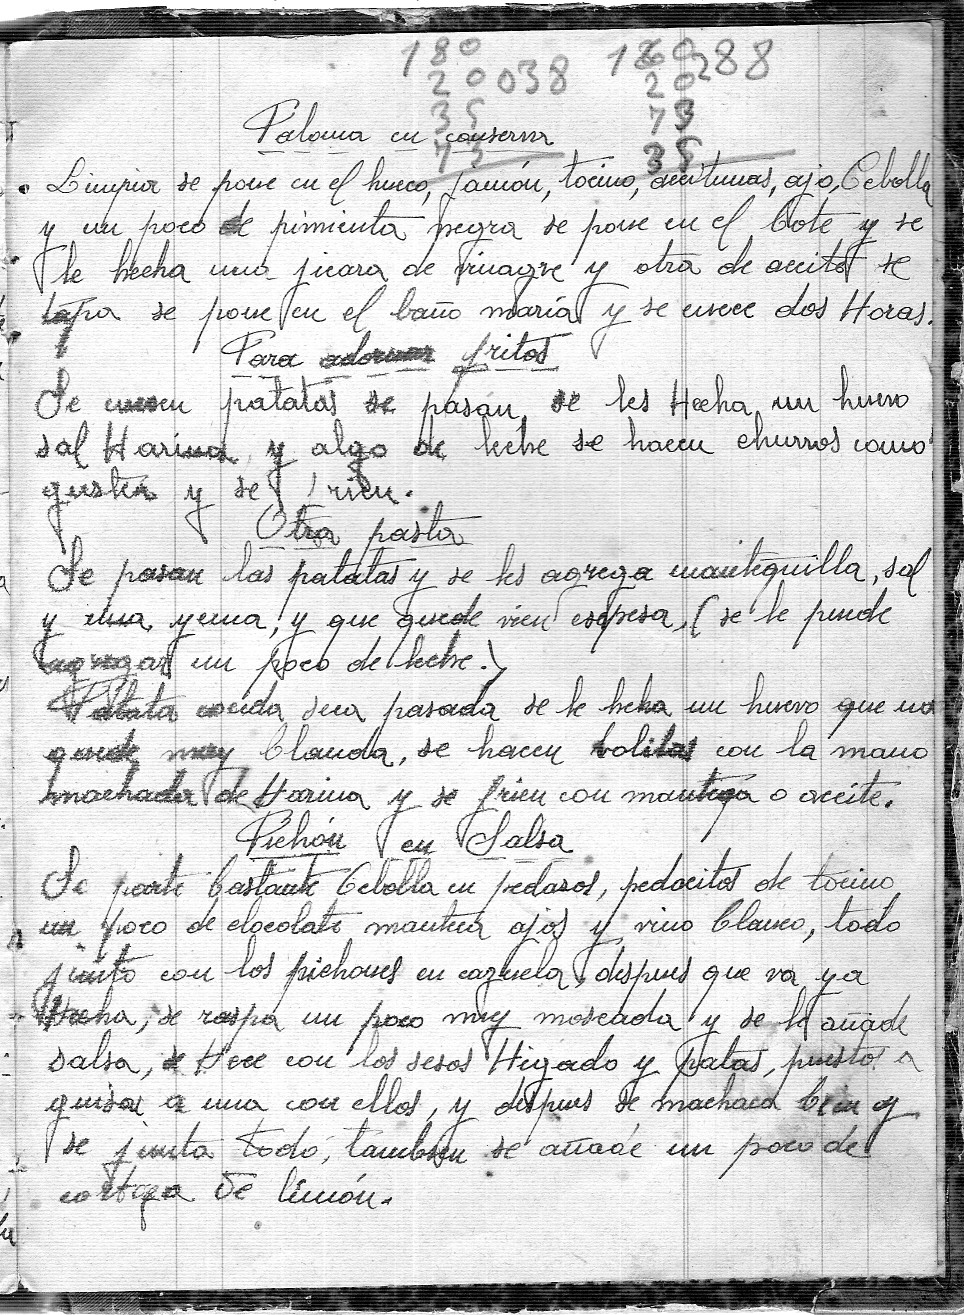 180 180 288
20 038 20
35 73
73 35
Paloma en conserva
Limpia se pone en el hueco, jamón, tocino, aceitunas, ajo, Cebolla
y un poco de pimienta negra se pone en el bote y se
le hecha una jicara de vinagre y otra de aceite se
tapa se pone en el baño maría y se cuece dos Horas.
Para adornar fritos
Se cuecen patatas se pasan, se les Hecha un huevo
sal Harina y algo de leche se hacen churros como
gusten y se frien.
Otra pasta
Se pasan las patatas y se les agrega mantequilla, sal
y una yema, y que quede vien espesa, (se le puede
agregar un poco de leche.)
Patata cocida seca pasada se le hecha un huevo que no
quede muy blanda, se hacen bolitas con la mano
machada de Harina y se frien con manteca o aceite.
Pichón en Salsa
Se parte bastante Cebolla en pedasos, pedacitos de tocino
un poco de clocolate manteca ajos y vino blanco, todo
junto con los pichones en cazuela, despues que va ya
Hecha, se raspa un poco nuy moscada y se le añade
salsa, se Hece con los sesos Higado y patas, puesto a
guisar a una con ellos, y despues se machaca bien y
se junta todo, tambien se añade un poco de
corteza de limón.